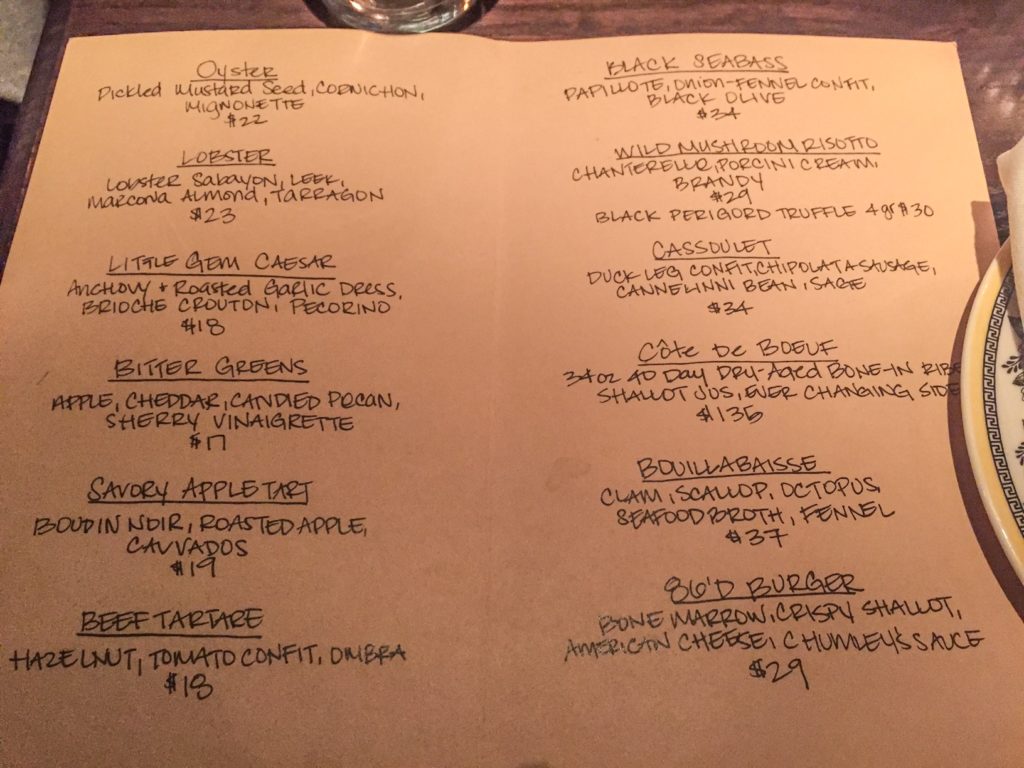 Oyster
Pickled Mustard Seed, CORNICHON,
MIGNONETTE
$22
LOBSTER
Lobster Sabayon, LEEK,
Marcona Almond, TARRAGON
$23
LITTLE GEM CAESAR
Anchovy + Roasted Garlic Dress,
BRIOCHE CROUTON, PECORINO
$18
BITTER GREENS
APPLE, CHEDDAR, CANDIED PECAN,
SHERRY VINAIGRETTE
$17
SAVORY APPLE TART
BOUDIN NOIR, ROASTED APPLE,
CAVVADOS
$19
BEEF TARTARE
HAZELNUT, TOMATO CONFIT, OMBRA
$18
BLACK SEABASS
PAPILLOTE, ONION-FENNEL CONFIT,
BLACK OLIVE
$34
WILD MUSHROOM RISOTTO
CHANTERELLE, PORCINI CREAM,
BRANDY
$29
BLACK PERIGORD TRUFFLE 4gr $30
CASSOULET
DUCK LEG CONFIT, CHIPOLATA SAUSAGE,
CANNELINNI BEAN, SAGE
$34
CÔTE DE BOEUF
34oz 40 Day Dry-Aged BONE-IN RIBE
SHALLOT JUS, EVER CHANGING SIDE
$135
BOUILLABAISSE
CLAM, SCALLOP, OCTOPUS,
SEAFOOD BROTH, FENNEL
$37
86'D BURGER
BONE MARROW, CRISPY SHALLOT,
AMERICAN CHEESE, CHUMLEY'S SAUCE
$29